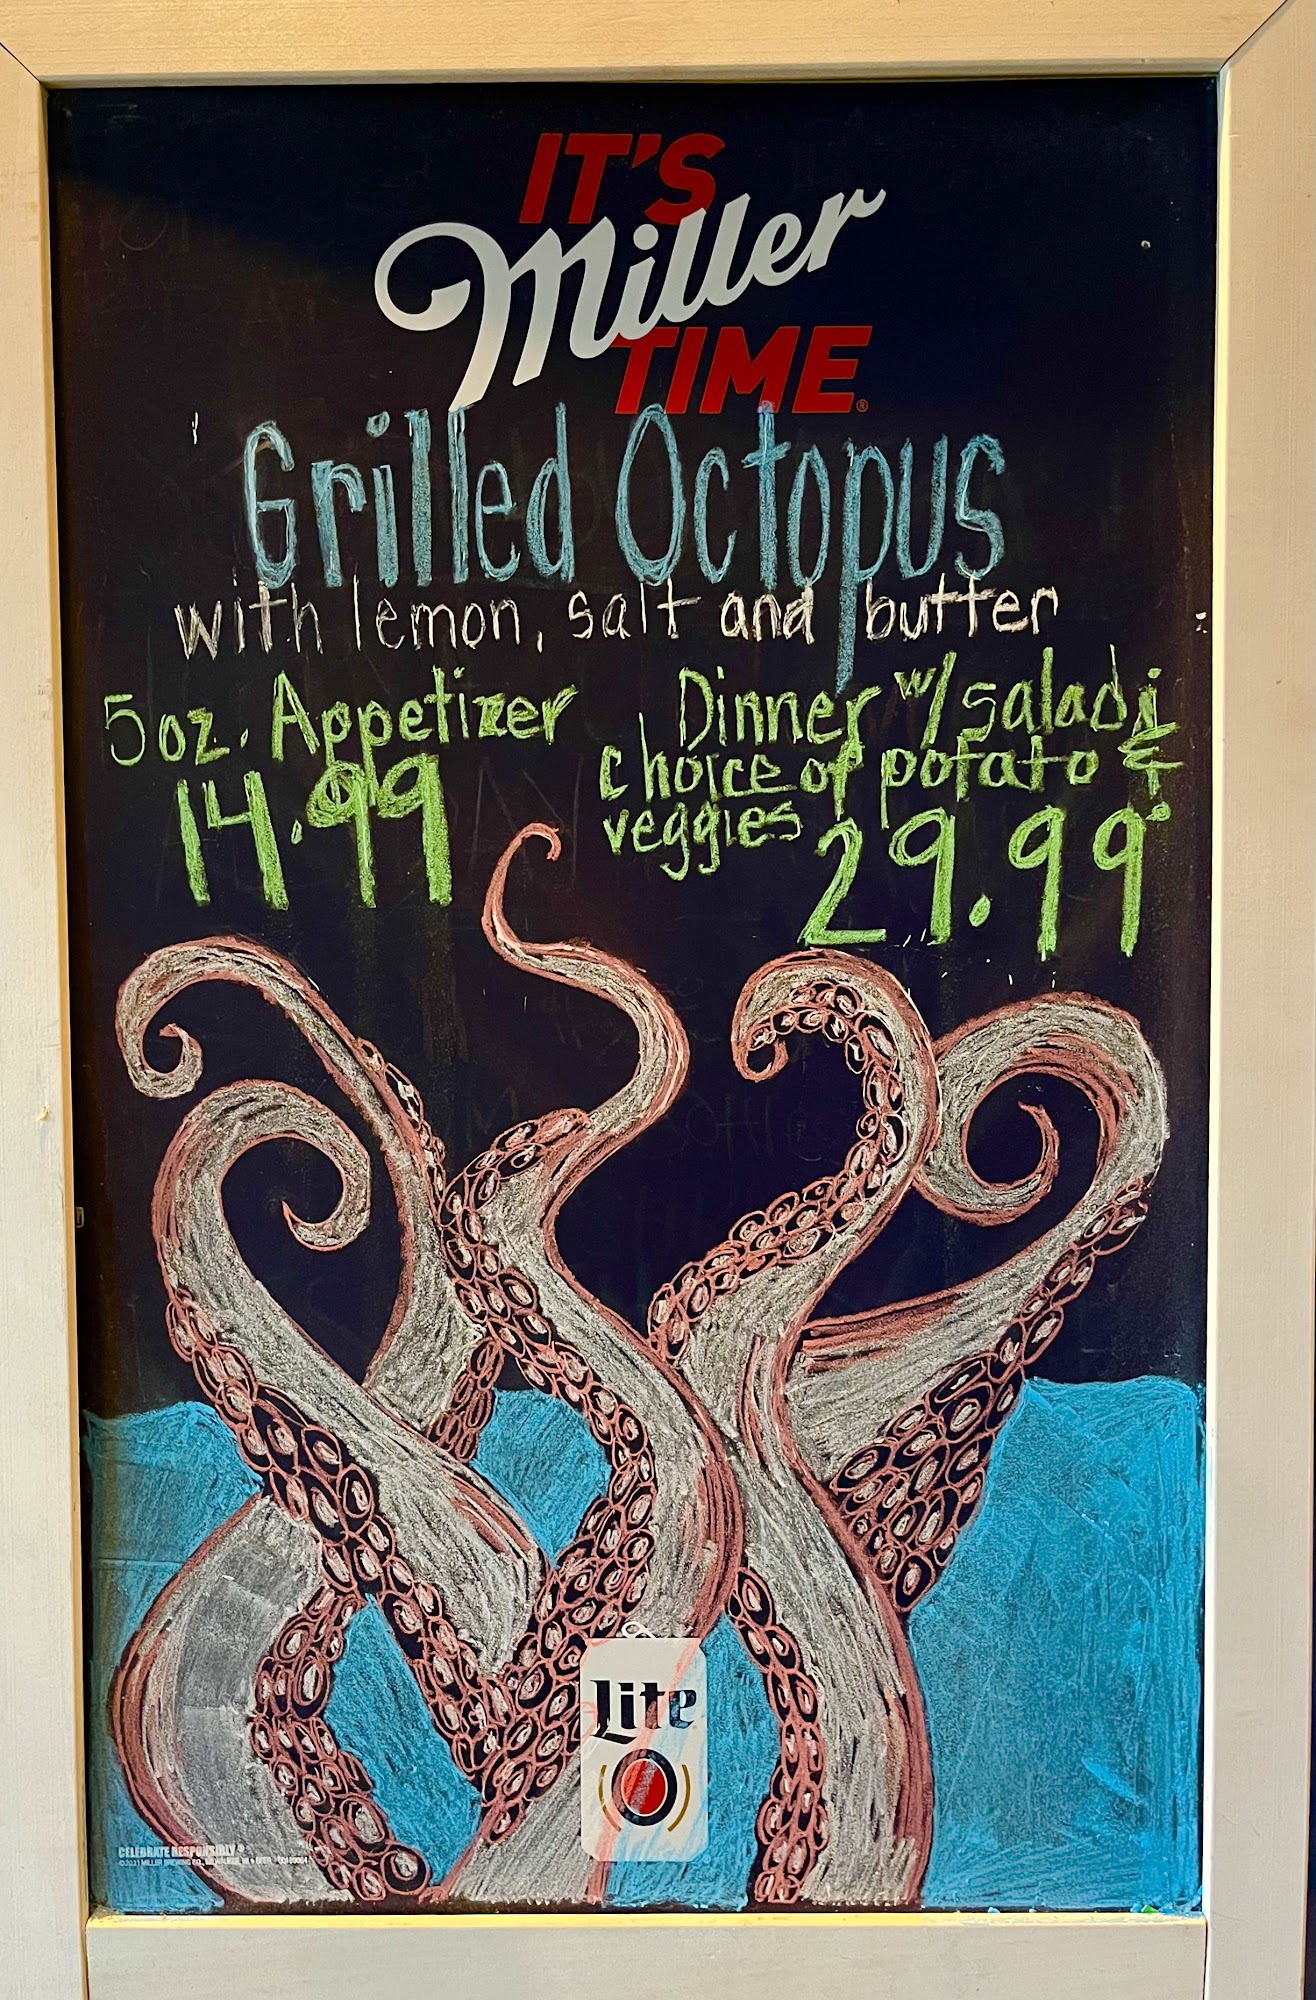 IT'S
Miller
TIME®
Grilled Octopus
with lemon, salt and butter
5oz. Appetizer
14.99
Dinner w/ salad,
choice of potato &
veggies 29.99
Lite
CELEBRATE RESPONSIBLY®
©2021 MILLER BREWING CO., MILWAUKEE, WI • BEER